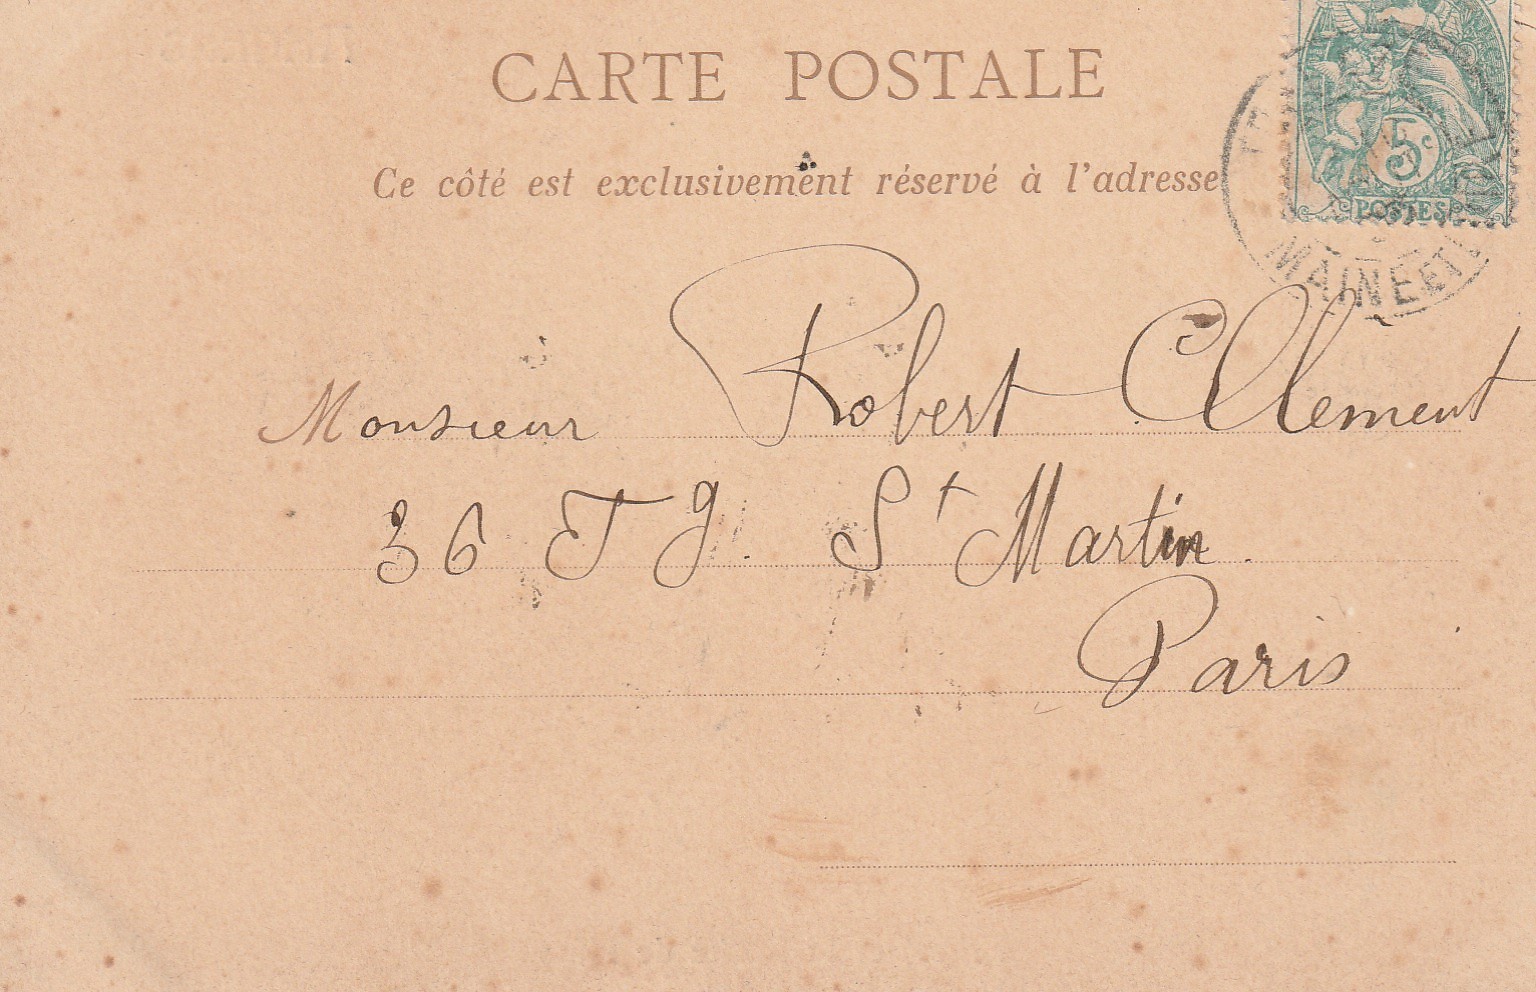 CARTE POSTALE
Ce côté est exclusivement réservé à l'adresse
5c
POSTES
MAINE ET L
Monsieur Robert Clément
36 Fg. St Martin.
Paris